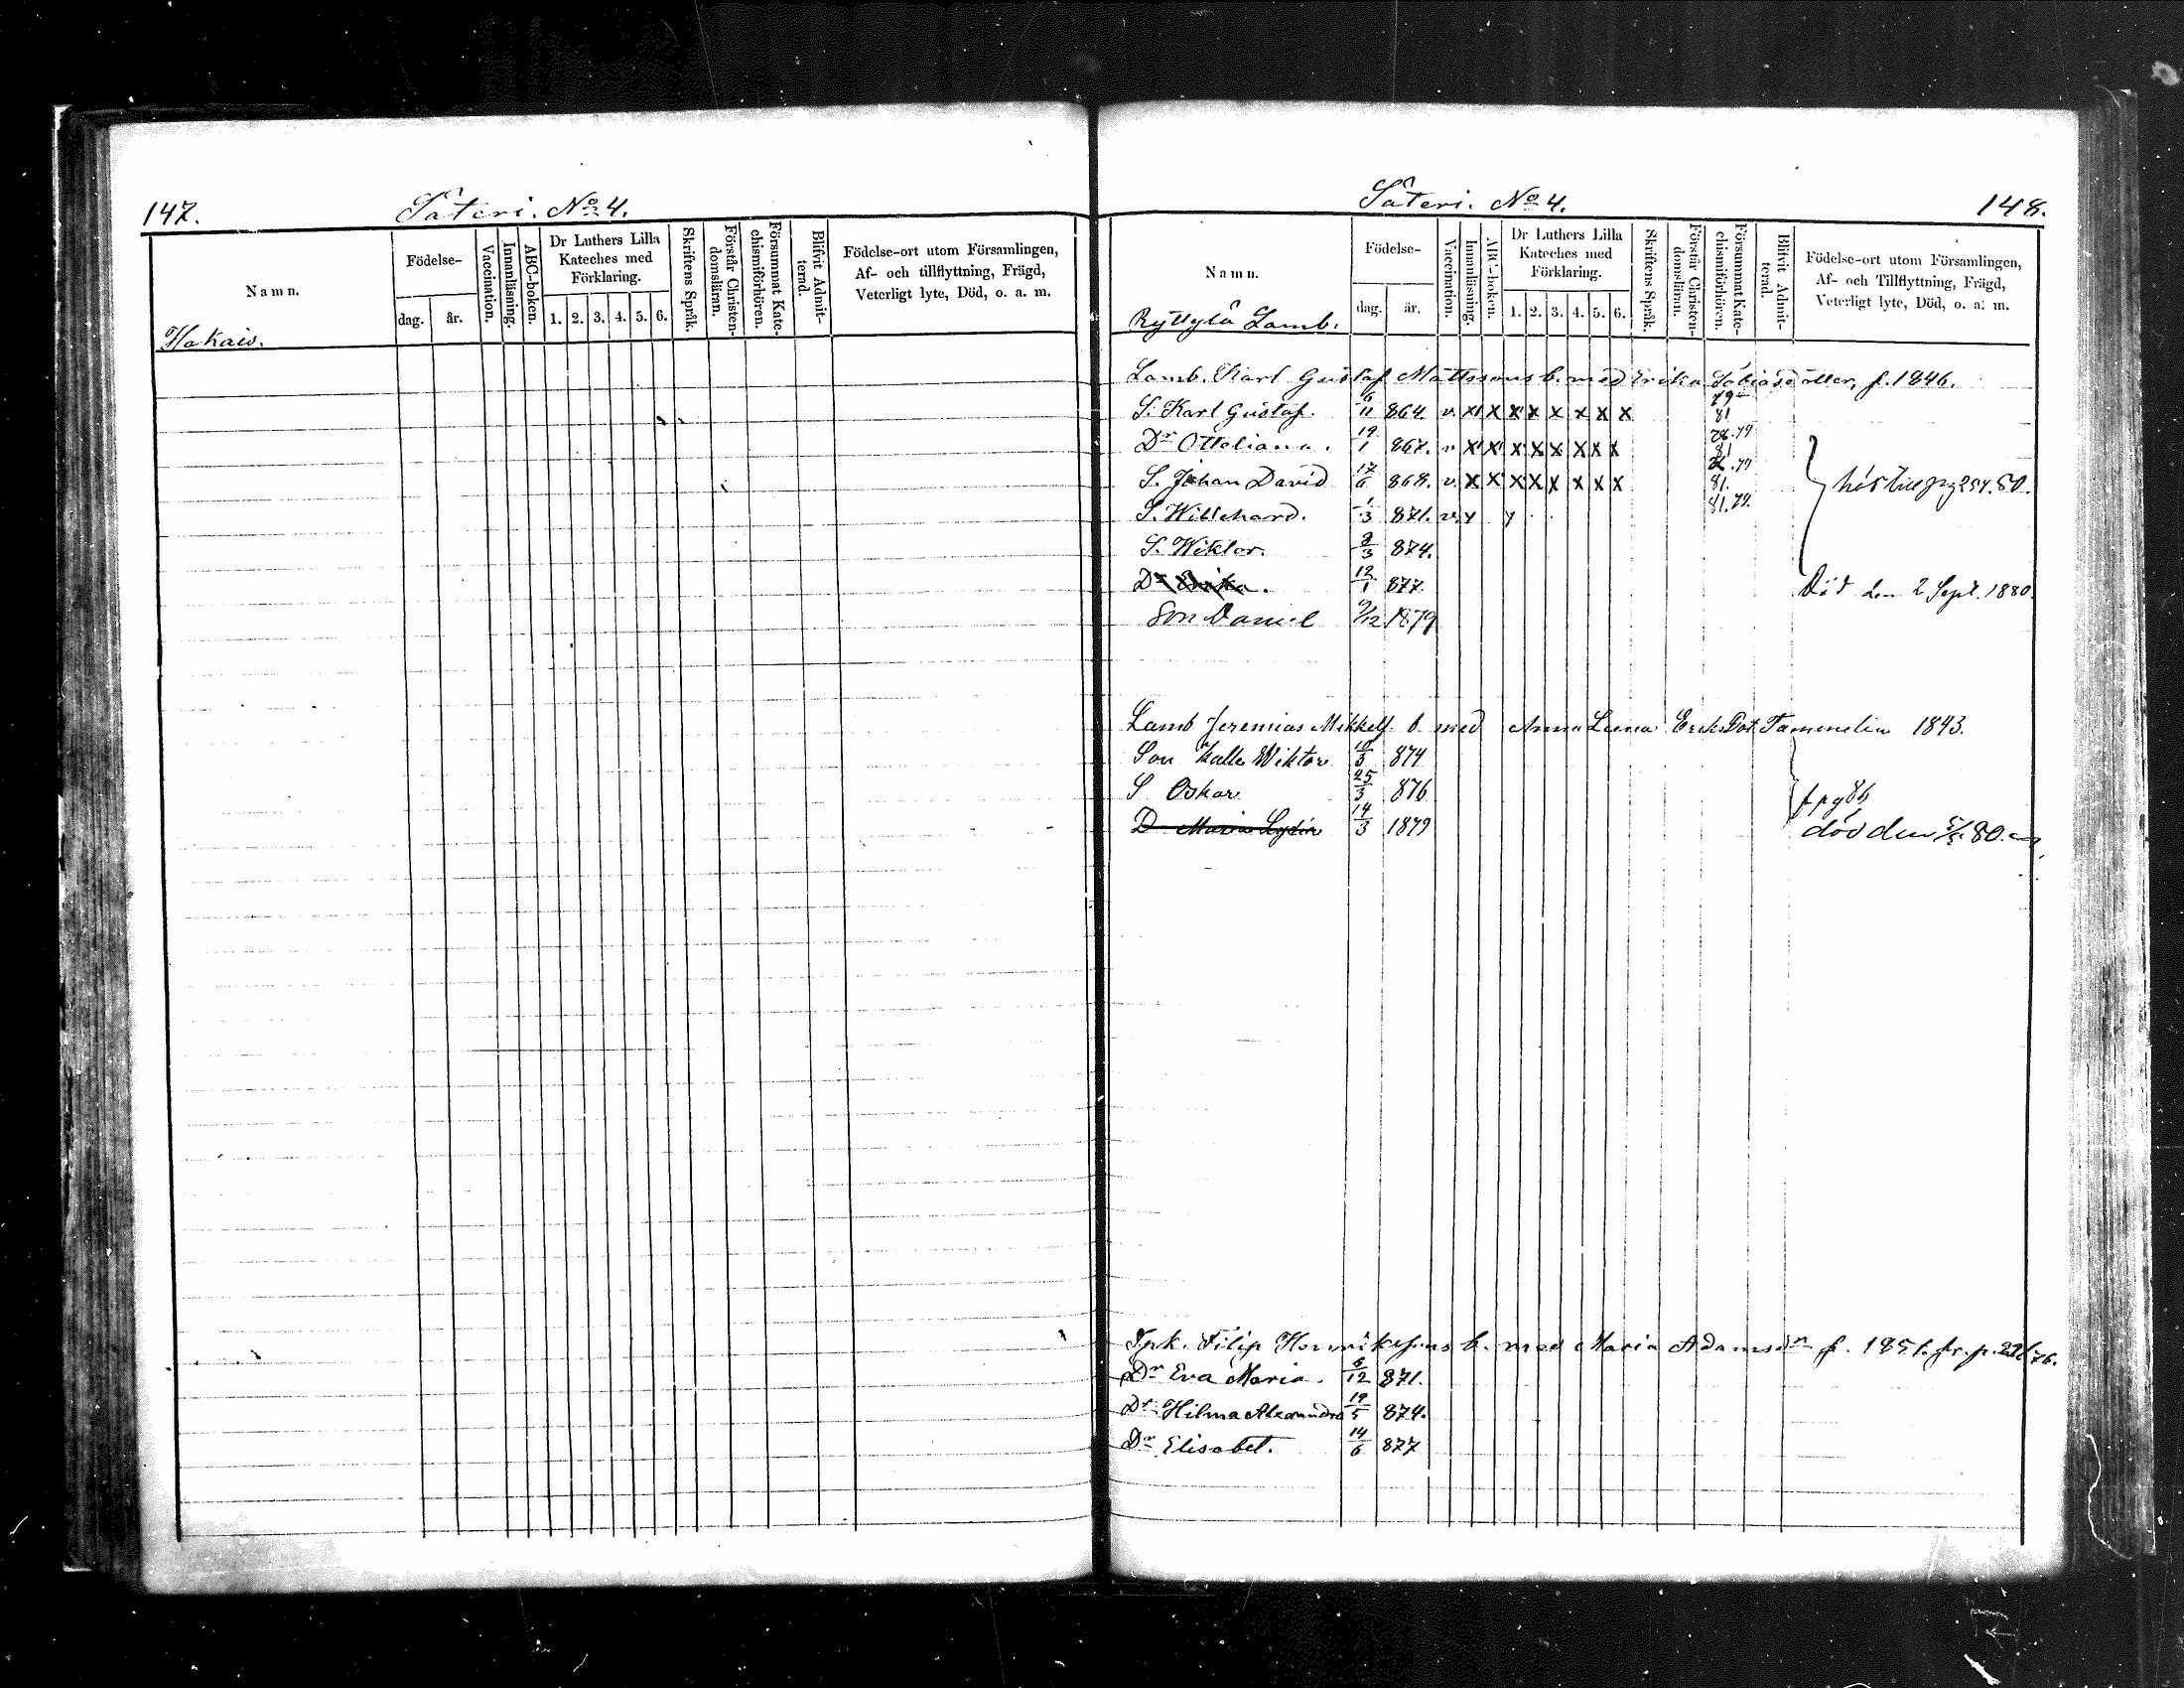 147.
Säteri. No 4.
Namn.
Födelse-
dag. år.
Vaccination.
Innanläsning.
ABC-boken.
Dr Luthers Lilla Kateches med Förklaring.
1. 2. 3. 4. 5. 6.
Skriftens Språk.
Förstår Christendomsläran.
Försummat Katechismiförhören.
Blifvit Admitterad.
Födelse-ort utom Församlingen,
Af- och tillflyttning, Frägd,
Veterligt lyte, Död, o. a. m.
148.
Säteri. No 4.
Namn.
Födelse-
dag. år.
Vaccination.
Innanläsning.
ABC-boken.
Dr Luthers Lilla Kateches med Förklaring.
1. 2. 3. 4. 5. 6.
Skriftens Språk.
Förstår Christendomsläran.
Försummat Katechismiförhören.
Blifvit Admitterad.
Födelse-ort utom Församlingen,
Af- och Tillflyttning, Frägd,
Veterligt lyte, Död, o. a. m.
Lamb.
Lamb. Karl Gustaf Mattssons b. med Erika f. 1846.
S. Karl Gustaf. 11 864. v. X X X X X X X X 79 81
Dr Otteliana. 19/1 867. v. X X X X X X X X 79 81
S. Johan David 17/6 868. v. X X X X X X X X 79 81.
S. Willehard. 1/3 871. v. y y 81. 79.
S. Wiktor. 3 874.
Dr Erika. 12/1 877. Död den 2 Sept. 1880.
Son Daniel 9/12 1879
Lamb Jeremias Mikkelss. b. med Anna Leena Eriksdot Tammelin 1843.
Son Kalle Wiktor 874
S Oskar 25/3 876
D Maria Lydia 14/3 1879 död den 80.
Filip Henrikssons b. med Maria Adamsdr f. 1851. fr. p.
Dr Eva Maria. 12 871.
Dr Hilma Alexandra 19/5 874.
Dr Elisabet. 14/6 877